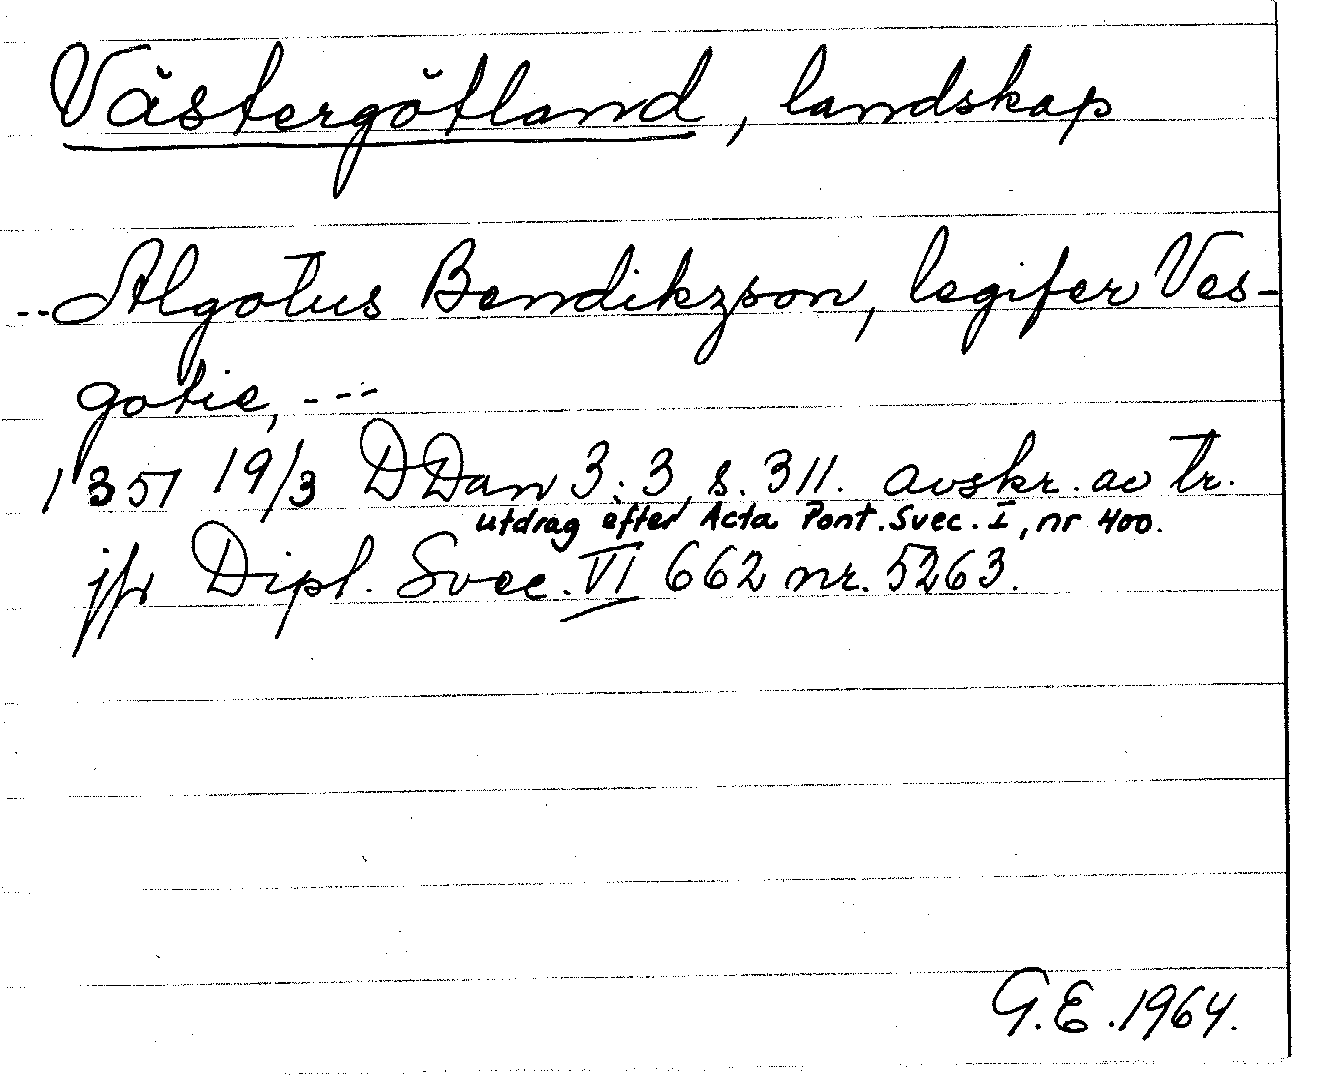 Västergötland, landskap
--Algotus Bendikzson, legifer Ves-
gotie, ---
1351 19/3 DDan 3:3, s. 311. avskr. av tr.
utdrag efter Acta Pont. Svec. I, nr 400.
jfr Dipl. Svec. VI 662 nr. 5263.
G.E. 1964.